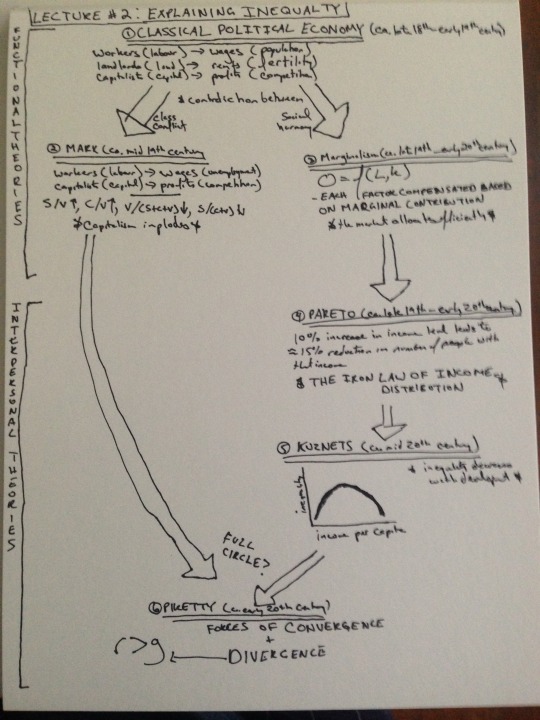 LECTURE #2: EXPLAINING INEQUALITY
FUNCTIONAL THEORIES
① CLASSICAL POLITICAL ECONOMY (ca. late 18th - early 19th century)
Workers (labour) → wages (population)
landlords (land) → rents (fertility)
Capitalist (capital) → profits (competition)
* contradiction between
class conflict
Social harmony
② MARX (ca. mid 19th century
Workers (labour) → wages (unemployment)
capitalist (capital) → profits (competition)
S/V↑, C/V↑, V/(S+C+V)↓, S/(C+V)↓
* Capitalism implodes *
③ Marginalism (ca. late 19th - early 20th century)
O = f(L, K)
- EACH FACTOR COMPENSATED BASED
ON MARGINAL CONTRIBUTION
* the market allocates efficiently *
INTERPERSONAL THEORIES
④ PARETO (ca. late 19th - early 20th century)
10% increase in income level leads to
≈ 15% reduction in number of people with
that income
* THE IRON LAW OF INCOME
DISTRIBUTION *
⑤ KUZNETS (ca. mid 20th century)
* inequality decreases
with development *
inequality
income per capita
FULL
CIRCLE?
⑥ PIKETTY (ca. early 20th century)
FORCES OF CONVERGENCE
+
DIVERGENCE
r > g